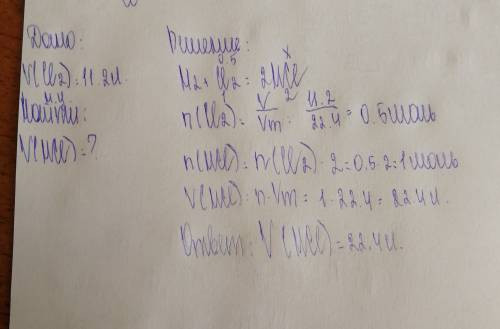 Дано:
V(Cl2)=11.2л.
н.у
Найти:
V(HCl)=?
Решение:
0.5 x
H2+Cl2=2HCl
2
n(Cl2)= V/Vm = 11.2/22.4 = 0.5моль
n(HCl)=n(Cl2)·2=0.5·2=1моль
V(HCl)=n·Vm=1·22.4=22.4л.
Ответ: V(HCl)=22.4л.